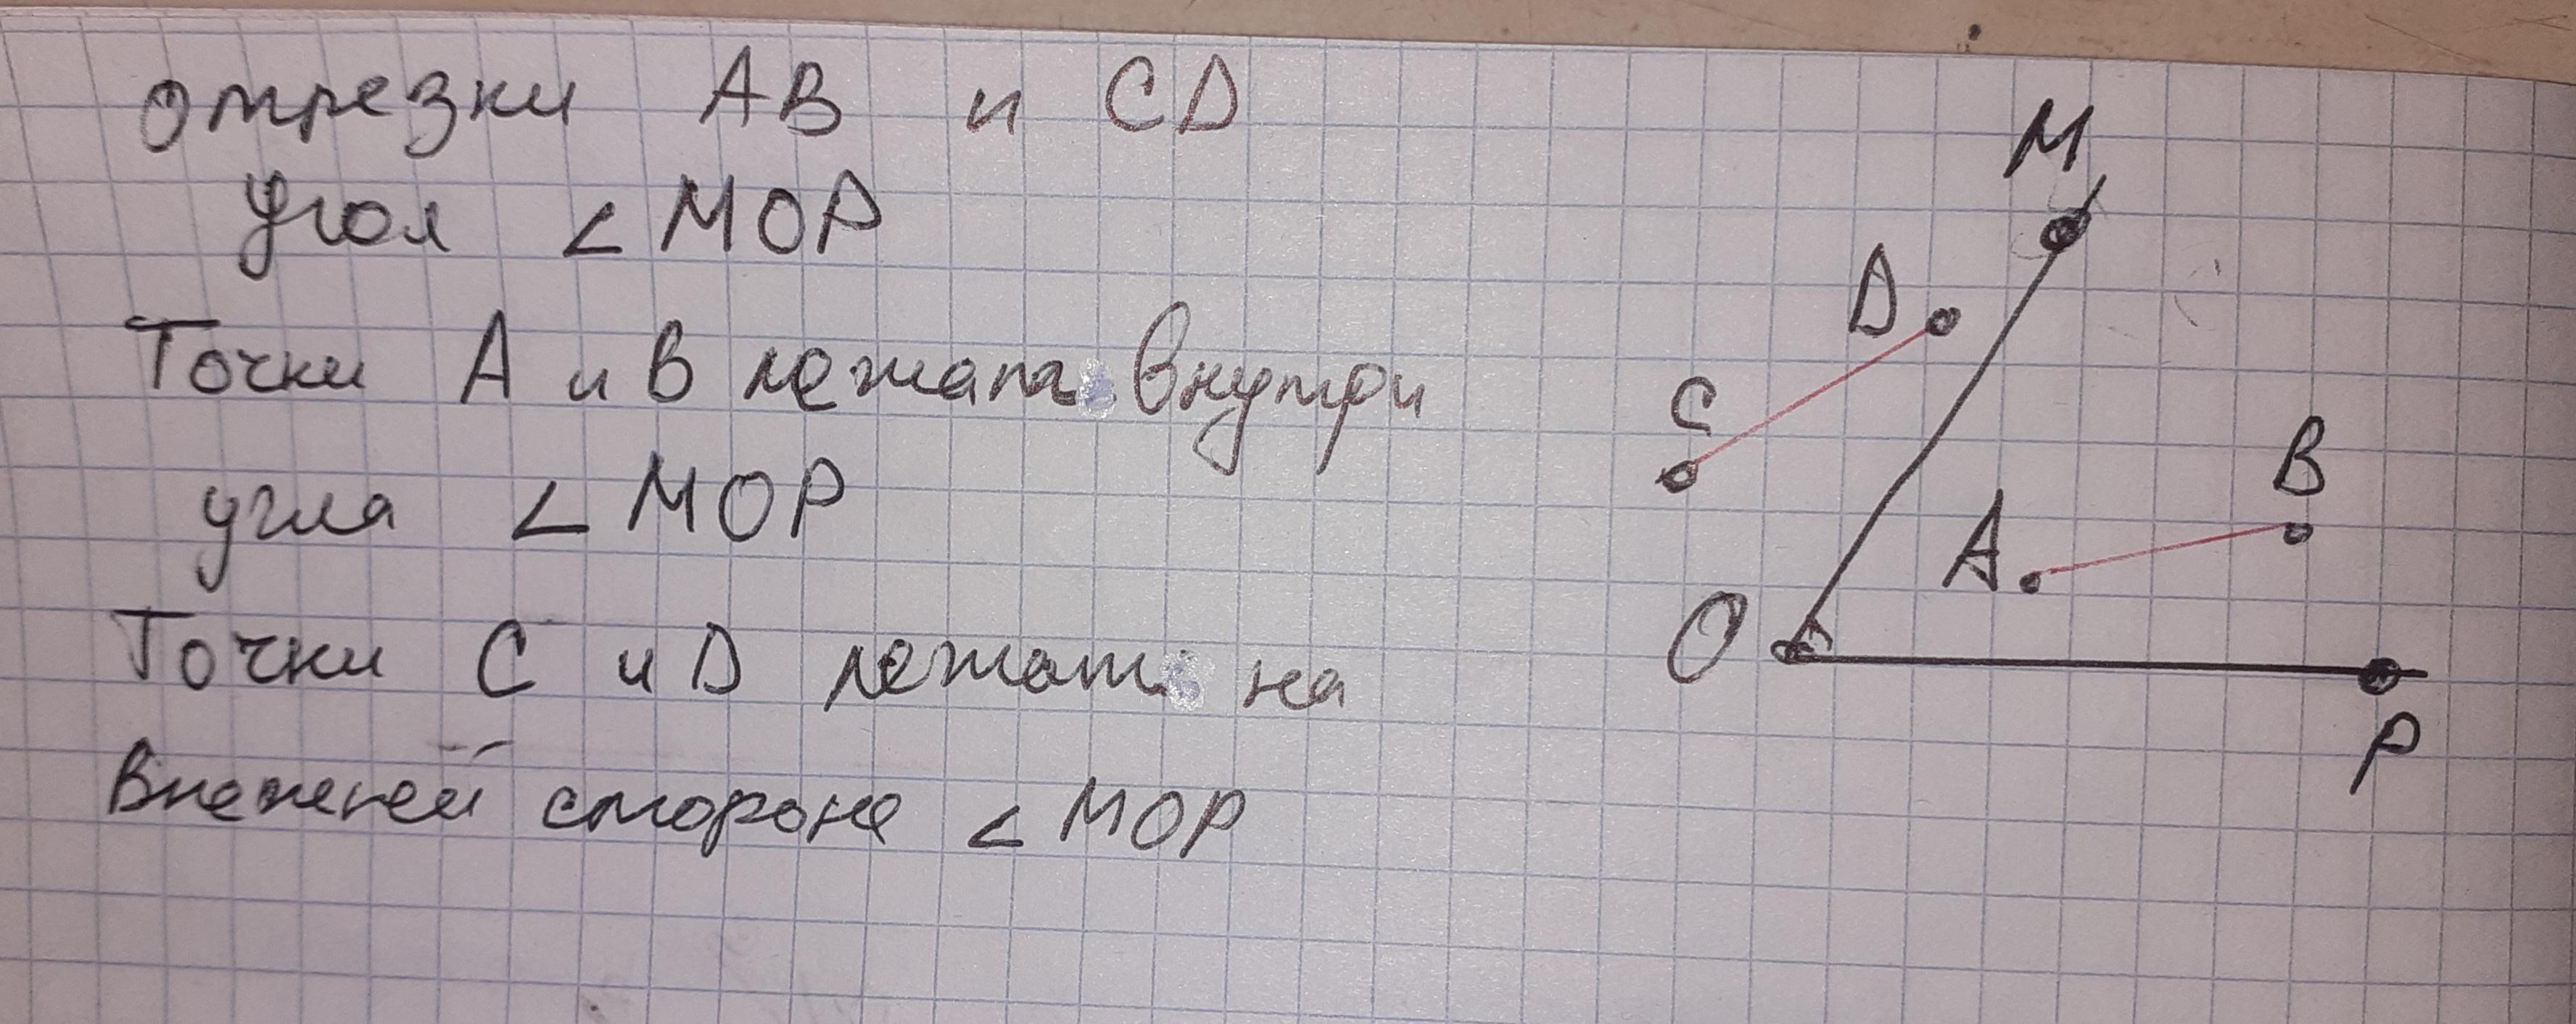 отрезки AB и CD
Угол ∠MOP
Точки A и B лежат внутри
угла ∠MOP
Точки C и D лежат на
внешней стороне ∠MOP
M
D
C
B
A
O
P